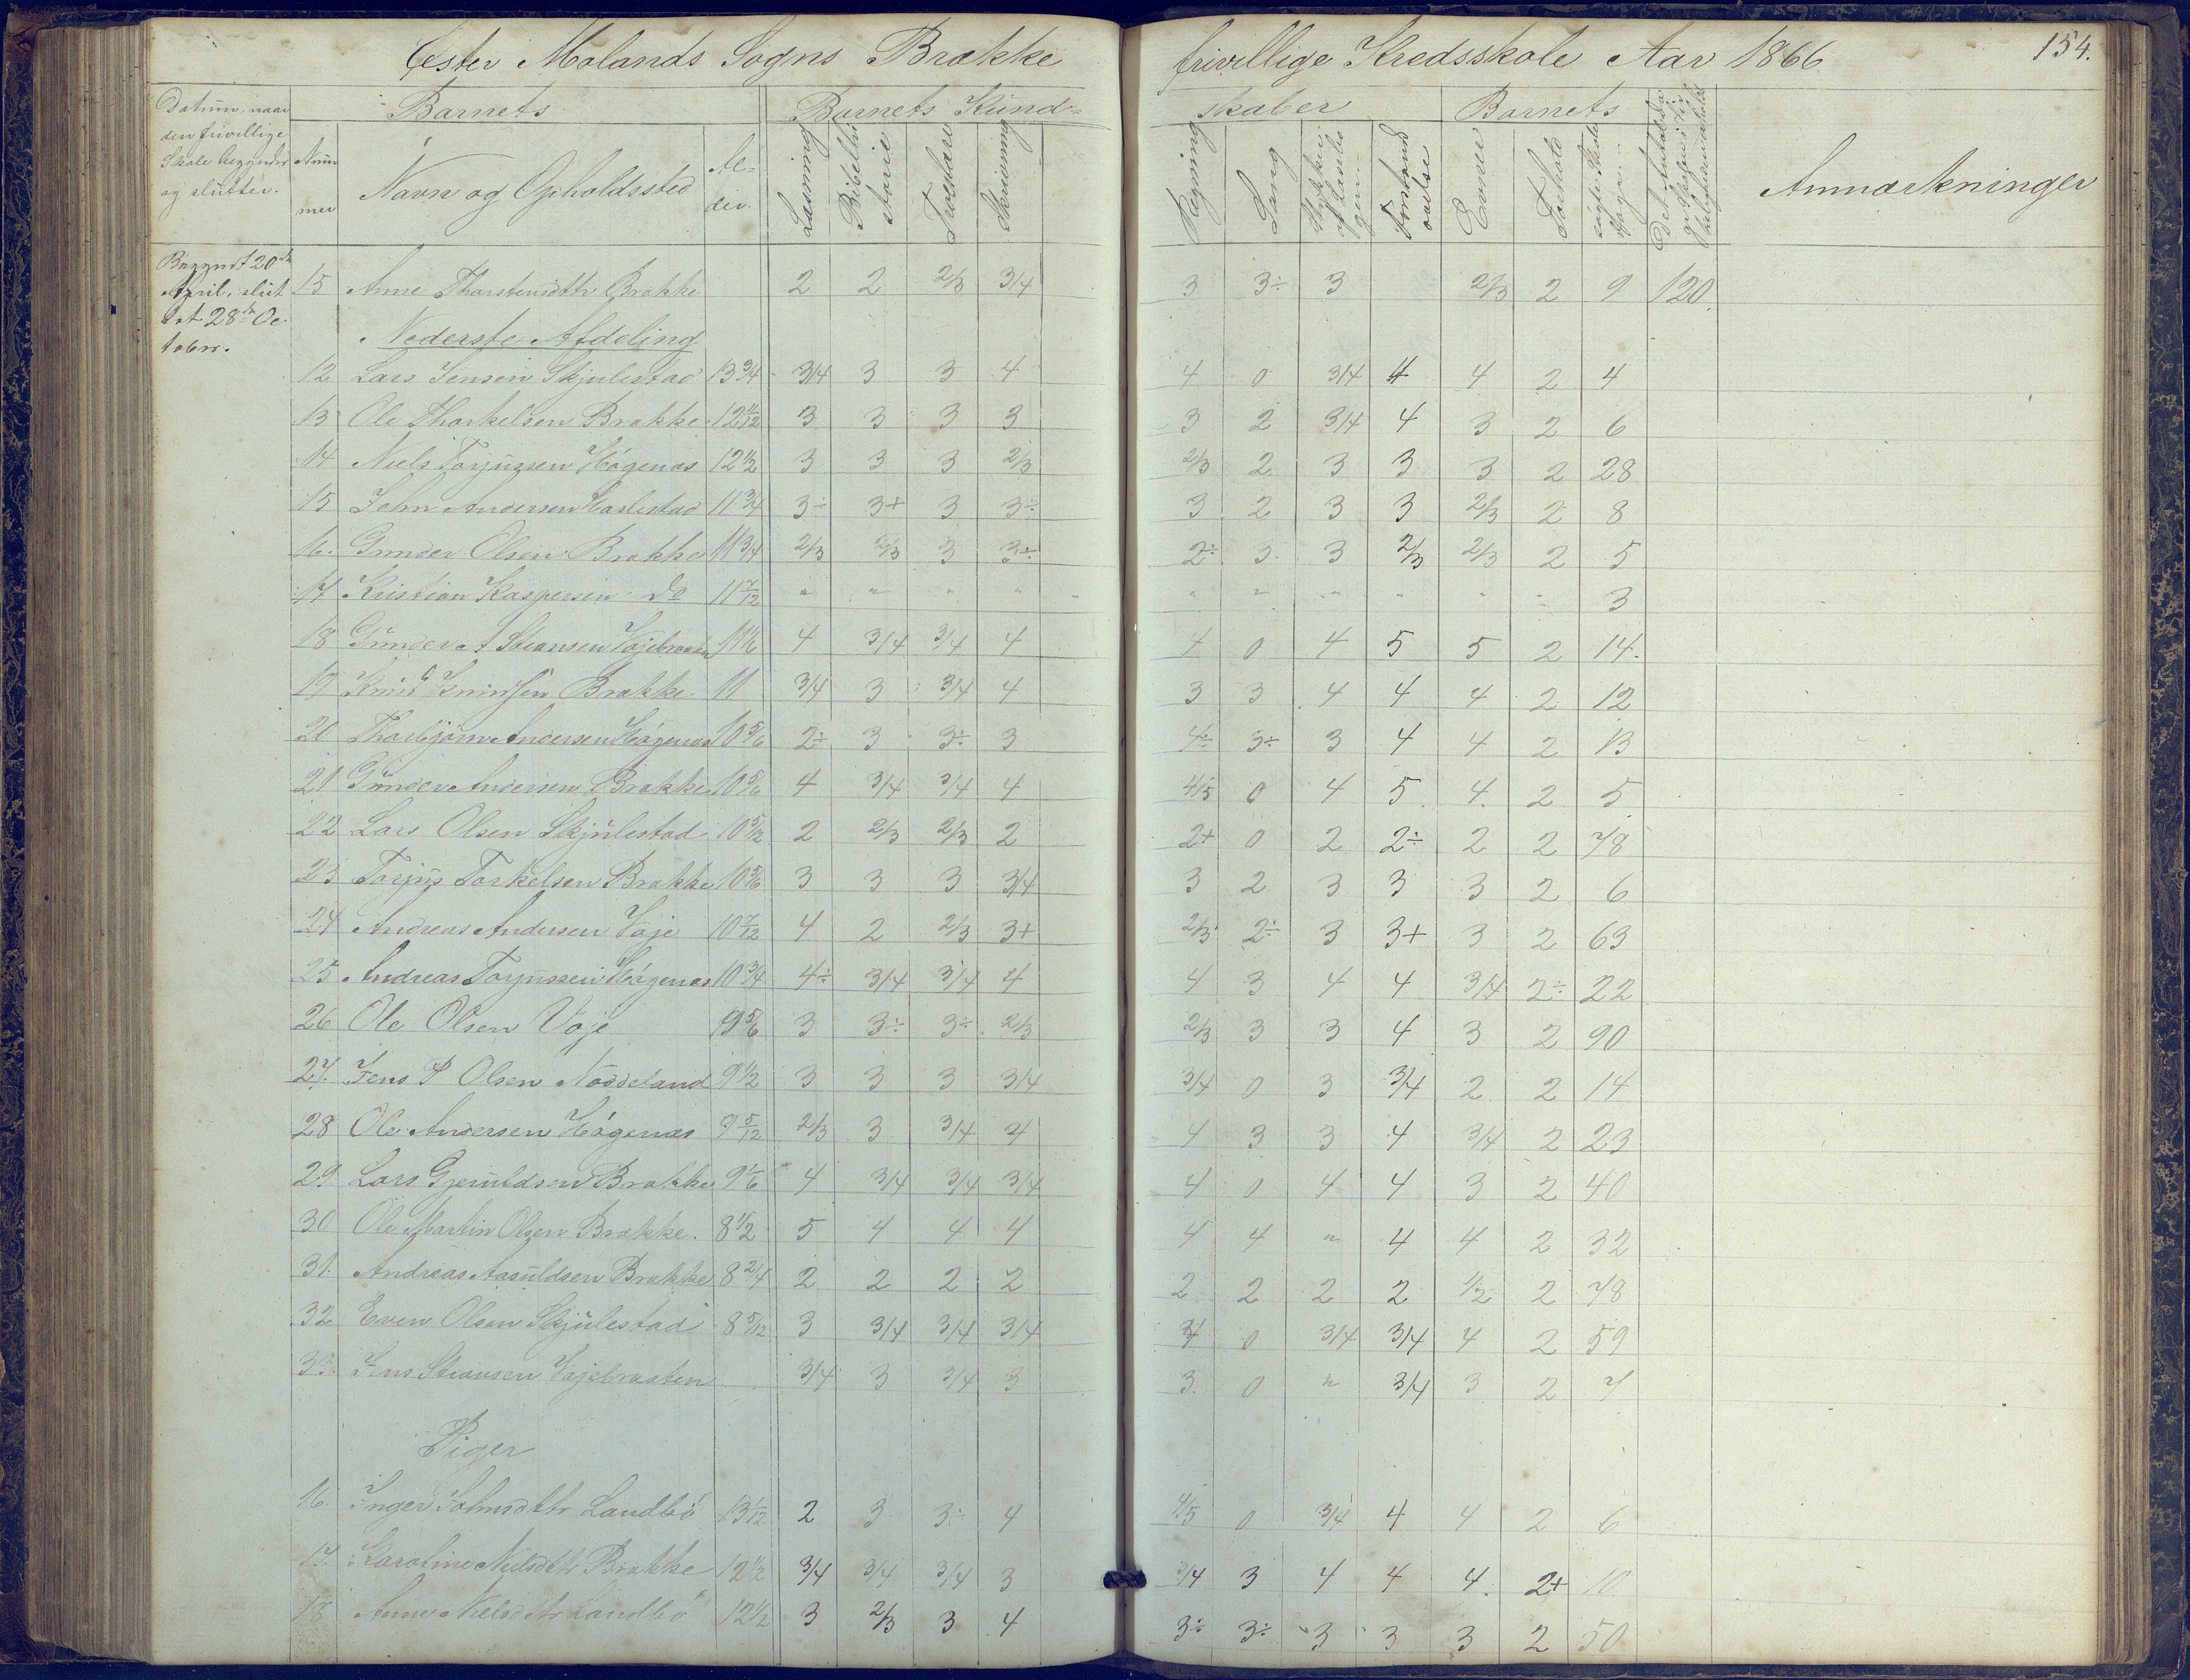 Øster Molands Sogns Brække frivillige Kredsskole Aar 1866 154.
Datum, naar den frivillige Skole begynder og slutter.
Barnets
Barnets Kundskaber
Barnets
Num mer
Navn og Opholdssted
Al- der.
Læsning
Bibelhi storie
Troeslære
Skrivning
Regning
Sang
Stykker af Læsebo gen
Forstands øvelse
Evner
Forhold
søgte Skole Dage
Anmærkninger
Begyndt 20de April, slut tet 28de Oc tober.
15 Anne Thorstensdttr Brække 2 2 2/3 3/4 3 3÷ 3 2/3 2 9 120.
Nederste Afdeling
12 Lars Jensen Skjulestad 13 3/4 3/4 3 3 4 4 0 3/4 4 4 2 4
13 Ole Thorkelsen Brække 12 11/12 3 3 3 3 3 2 3/4 4 3 2 6
14 Niels Torjussen Högenæs 12 1/2 3 3 3 2/3 2/3 2 3 3 3 2 28
15 John Andersen Harlestad 11 3/4 3÷ 3+ 3 3÷ 3 2 3 3 2/3 2 8
16. Gunder Olsen Brække 11 3/4 2/3 2/3 3 3÷ 2÷ 3 3 2/3 2/3 2 5
17 Kristian Kaspersen do 11 7/12 " " " " " " " " " " 3
18 Gunder A Stiansen Vajebraaten 11 1/6 4 3/4 3/4 4 4 0 4 5 5 2 14.
19 Knud Knudsen Brække. 11 3/4 3 3/4 4 3 3 4 4 4 2 12
20 Thorbjörn Andersen Högenæs 10 5/6 2÷ 3 3÷ 3 4÷ 3÷ 3 4 4 2 13
21 Gunder Andersen Brække 10 5/6 4 3/4 3/4 4 4/5 0 4 5 4. 2 5
22 Lars Olsen Skjulestad 10 5/12 2 2/3 2/3 2 2+ 0 2 2÷ 2 2 78
23 Torjus Torkelsen Brække 10 5/6 3 3 3 3/4 3 2 3 3 3 2 6
24 Andreas Andersen Vaje 10 7/12 4 2 2/3 3+ 2/3 2÷ 3 3+ 3 2 63
25 Andreas Torjussen Högenæs 10 3/4 4÷ 3/4 3/4 4 4 3 4 4 3/4 2÷ 22
26 Ole Olsen Vaje 9 5/6 3 3÷ 3÷ 2/3 2/3 3 3 4 3 2 90
27. Jens P Olsen Nöddeland 9 1/2 3 3 3 3/4 3/4 0 3 3/4 2 2 14
28 Ole Andersen Högenæs 9 5/12 2/3 3 3/4 4 4 3 3 4 3/4 2 23
29 Lars Gjeruldsen Brække 9 1/6 4 3/4 3/4 3/4 4 0 4 4 3 2 40
30 Ole Martin Olsen Brække. 8 1/2 5 4 4 4 4 4 " 4 4 2 32
31. Andreas Aasuldsen Brække 8 2/4 2 2 2 2 2 2 2 2 1/2 2 78
32 Even Olsen Skjulestad 8 5/12 3 3/4 3/4 3/4 0 3/4 3/4 4 2 59
33. Jens Stiansen Vajebraaten 3/4 3 3/4 3 3. 0 " 3/4 3 2 7
Piger
16. Inger Johnsdttr Landbö 13 1/12 2 3 3÷ 4 4/5 0 3/4 4 4 2 6
17. Karoline Nielsdttr Brække 12 1/2 3/4 3/4 3/4 3 3/4 3 4 4 4. 2+ 10
18 Anne Nielsdttr Landbö 12 1/2 3 2/3 3 4 3÷ 3÷ 3 3 3 2 50